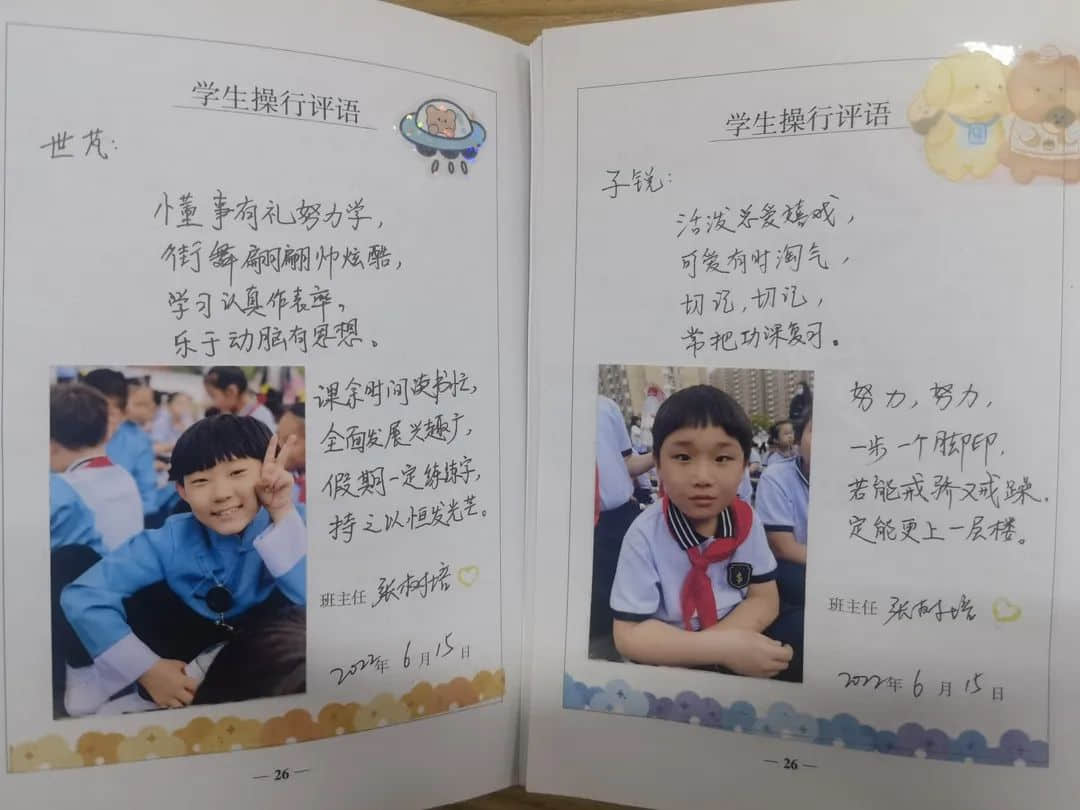 学生操行评语
世芃：
懂事有礼努力学，
街舞翩翩帅炫酷，
学习认真作表率。
乐于动脑有思想。
课余时间读书忙，
全面发展兴趣广，
假期一定练练字，
持之以恒发光芒。
班主任 张树培
2022年 6月15日
— 26 —
学生操行评语
子锐：
活泼总爱嬉戏，
可爱有时淘气，
切记，切记，
常把功课复习。
努力，努力，
一步一个脚印，
若能戒骄又戒躁，
定能更上一层楼。
班主任 张树培
2022年 6月15日
— 26 —